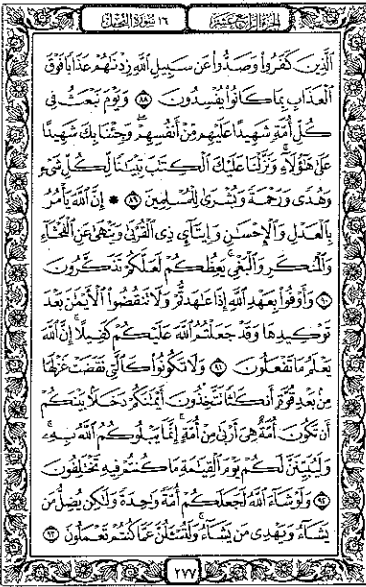 الجزء الرابع عشر ١٦ سورة النحل
ٱلَّذِينَ كَفَرُوا۟ وَصَدُّوا۟ عَن سَبِيلِ ٱللَّهِ زِدْنَٰهُمْ عَذَابًا فَوْقَ
ٱلْعَذَابِ بِمَا كَانُوا۟ يُفْسِدُونَ ٨٨ وَيَوْمَ نَبْعَثُ فِى
كُلِّ أُمَّةٍ شَهِيدًا عَلَيْهِم مِّنْ أَنفُسِهِمْ ۖ وَجِئْنَا بِكَ شَهِيدًا
عَلَىٰ هَٰٓؤُلَآءِ ۚ وَنَزَّلْنَا عَلَيْكَ ٱلْكِتَٰبَ تِبْيَٰنًا لِّكُلِّ شَىْءٍ
وَهُدًى وَرَحْمَةً وَبُشْرَىٰ لِلْمُسْلِمِينَ ٨٩ ۞ إِنَّ ٱللَّهَ يَأْمُرُ
بِٱلْعَدْلِ وَٱلْإِحْسَٰنِ وَإِيتَآئِ ذِى ٱلْقُرْبَىٰ وَيَنْهَىٰ عَنِ ٱلْفَحْشَآءِ
وَٱلْمُنكَرِ وَٱلْبَغْىِ ۚ يَعِظُكُمْ لَعَلَّكُمْ تَذَكَّرُونَ
٩٠ وَأَوْفُوا۟ بِعَهْدِ ٱللَّهِ إِذَا عَٰهَدتُّمْ وَلَا تَنقُضُوا۟ ٱلْأَيْمَٰنَ بَعْدَ
تَوْكِيدِهَا وَقَدْ جَعَلْتُمُ ٱللَّهَ عَلَيْكُمْ كَفِيلًا ۚ إِنَّ ٱللَّهَ
يَعْلَمُ مَا تَفْعَلُونَ ٩١ وَلَا تَكُونُوا۟ كَٱلَّتِى نَقَضَتْ غَزْلَهَا
مِنۢ بَعْدِ قُوَّةٍ أَنكَٰثًا تَتَّخِذُونَ أَيْمَٰنَكُمْ دَخَلًۢا بَيْنَكُمْ
أَن تَكُونَ أُمَّةٌ هِىَ أَرْبَىٰ مِنْ أُمَّةٍ ۚ إِنَّمَا يَبْلُوكُمُ ٱللَّهُ بِهِۦ ۚ
وَلَيُبَيِّنَنَّ لَكُمْ يَوْمَ ٱلْقِيَٰمَةِ مَا كُنتُمْ فِيهِ تَخْتَلِفُونَ
٩٢ وَلَوْ شَآءَ ٱللَّهُ لَجَعَلَكُمْ أُمَّةً وَٰحِدَةً وَلَٰكِن يُضِلُّ مَن
يَشَآءُ وَيَهْدِى مَن يَشَآءُ ۚ وَلَتُسْـَٔلُنَّ عَمَّا كُنتُمْ تَعْمَلُونَ ٩٣
٢٧٧